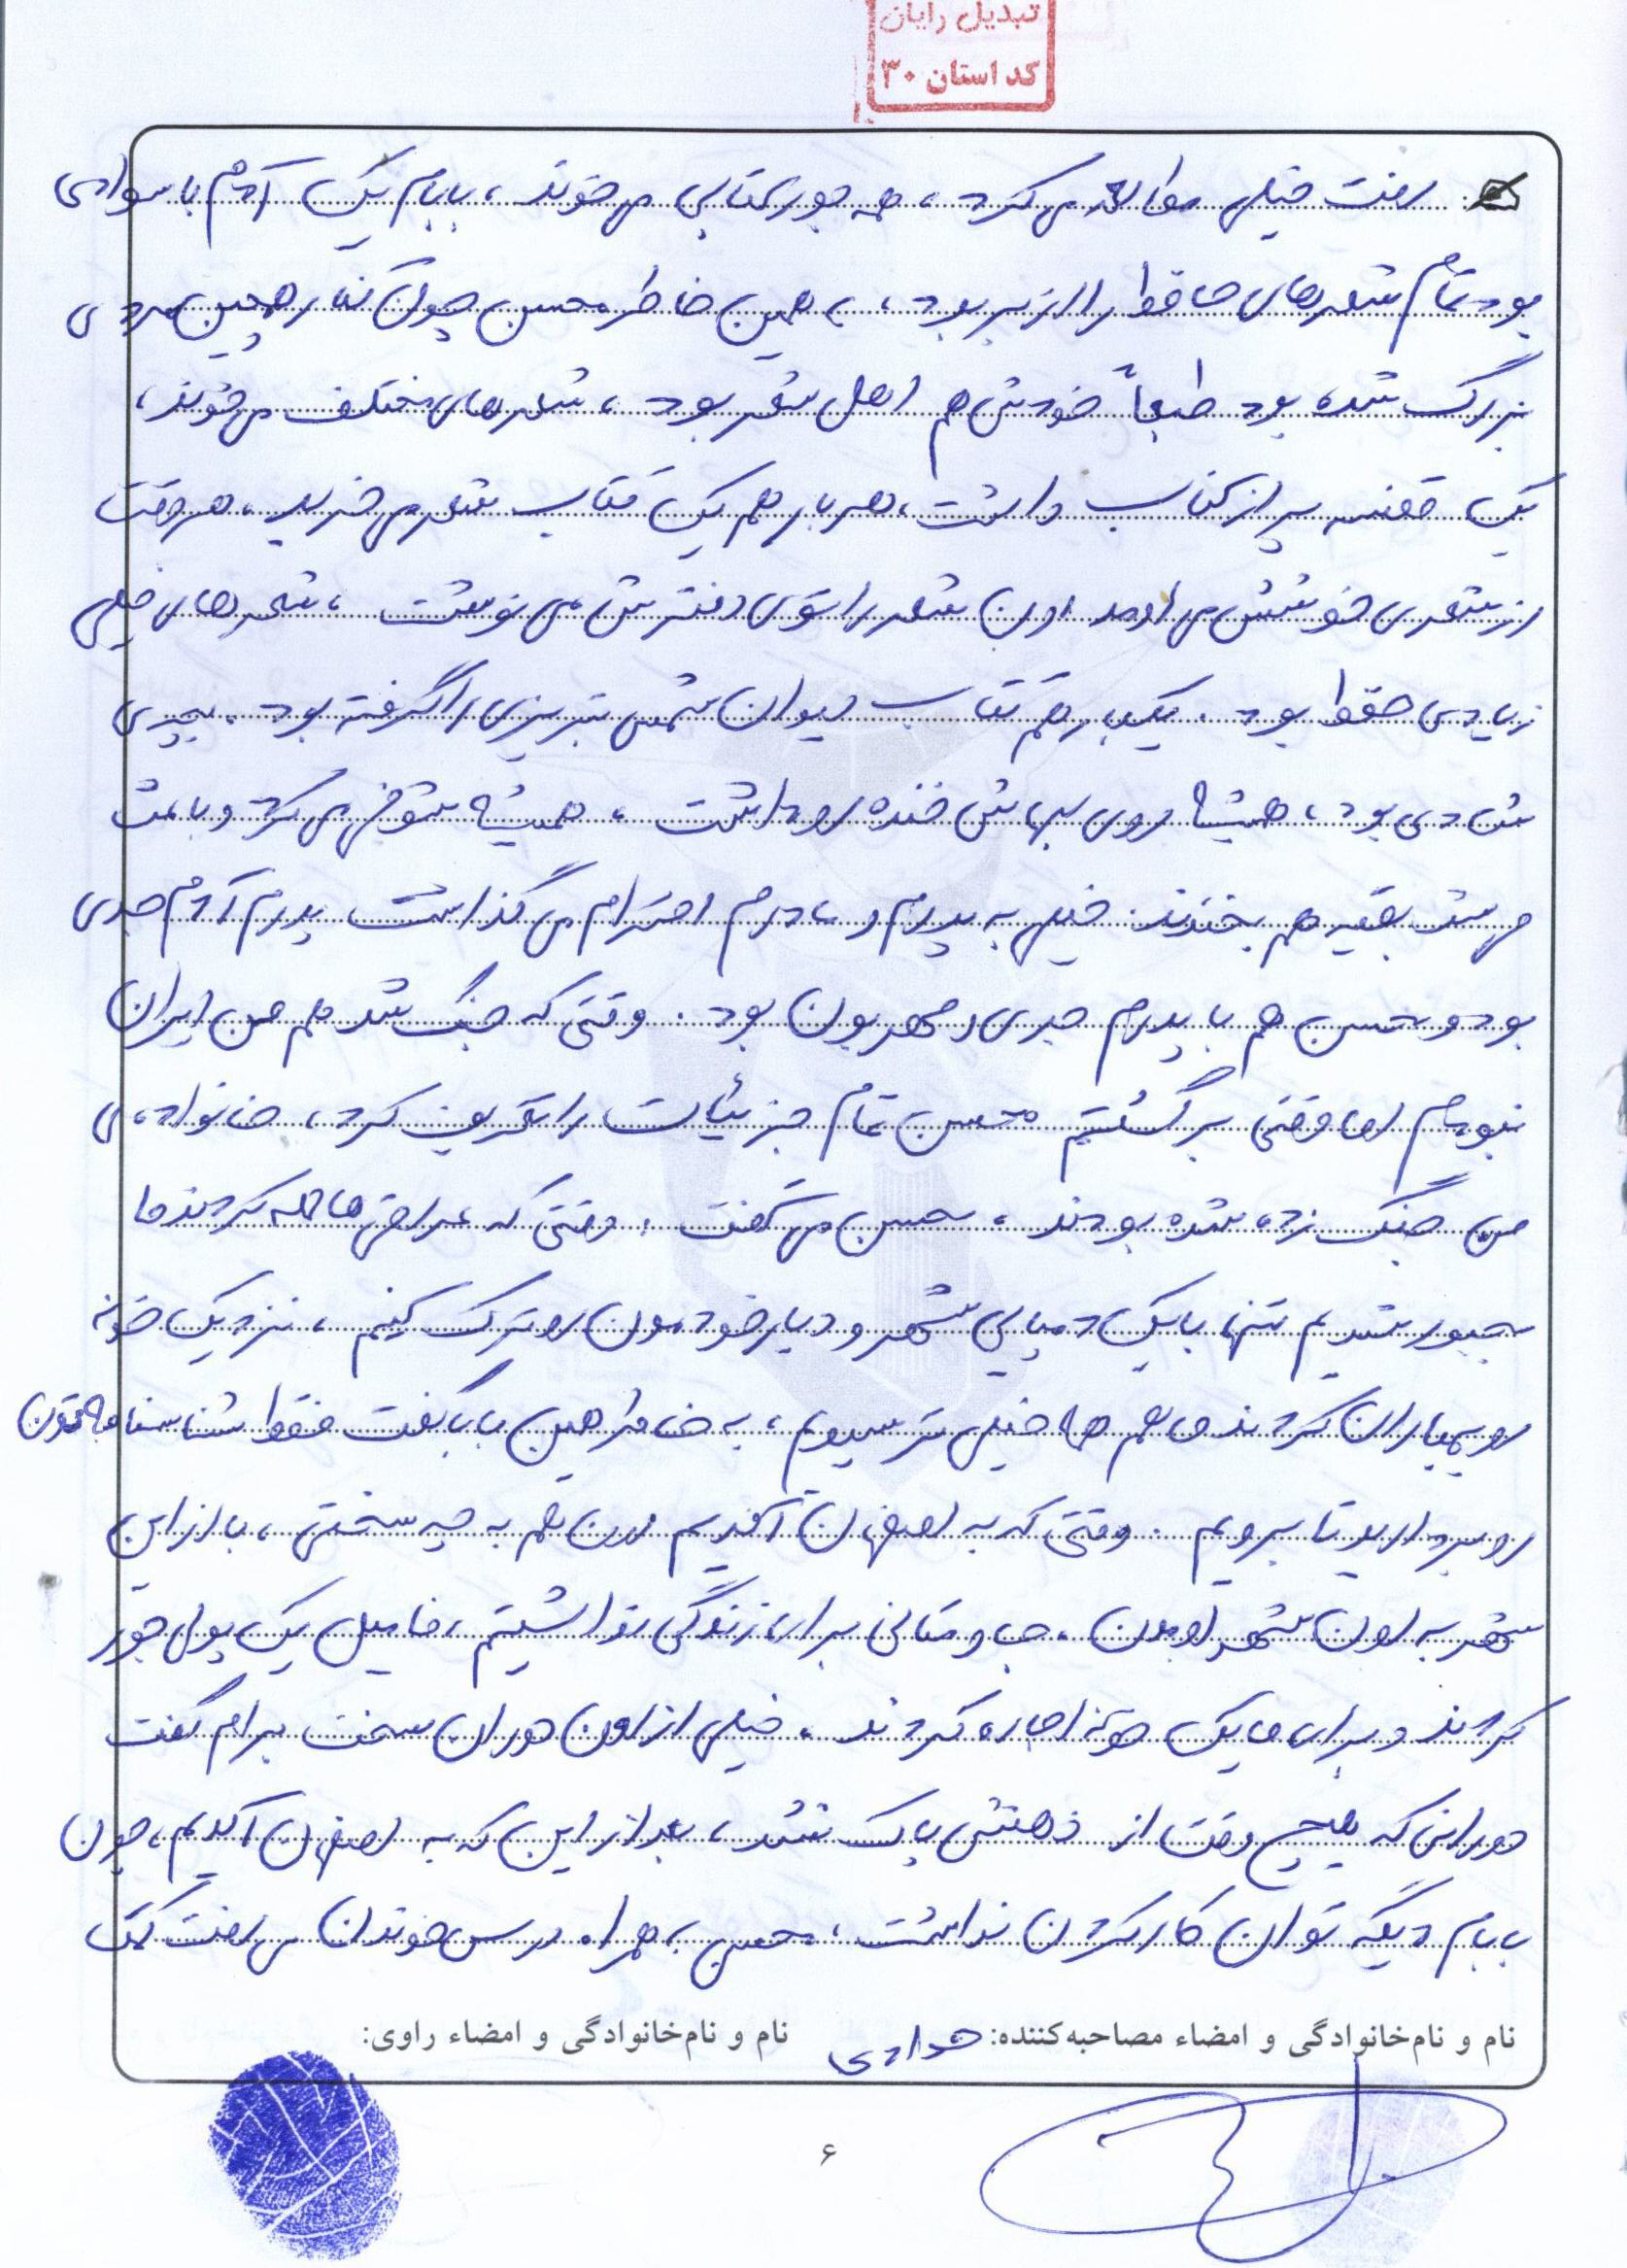 تبدیل رایان
کد استان ۳۰
رفت خیلی مطالعه می‌کرد، همه جور کتابی می‌خوند، بابام یک آدم با سوادی
بود تمام شعرهای حافظ را از بر بود، به همین خاطر محسن چون کنار همچین مردی
بزرگ شده بود طبعاً خودش هم اهل شعر بود، شعرهای مختلف می‌خوند،
یک قفسه پر از کتاب داشت، هر بار هم یک کتاب شعر می‌خرید، هر وقت
از شعری خوشش می‌اومد اون شعر را توی دفترش می‌نوشت، شعرهای خیلی
زیادی حفظ بود. یکبار هم کتاب دیوان شمس تبریزی را گرفته بود. بچه‌ی
شادی بود، همیشه روی لبهاش خنده رو داشت، همیشه شوخی می‌کرد و باعث
می‌شد بقیه هم بخندند. خیلی به پدرم و مادرم احترام می‌گذاشت پدرم آدم جدی
بود و محسن هم با پدرم جدی و مهربون بود. وقتی که جنگ شد هم من ایران
نبودم اما وقتی برگشتم محسن تمام جزئیات را تعریف کرد، خانواده‌ی
من جنگ زده شده بودند، محسن می‌گفت: وقتی که عراقی‌ها حمله کردند ما
مجبور شدیم تنها با یک دمپایی شهر و دیار خودمون رو ترک کنیم، نزدیک خونه
رو بمباران کردند ما هم خیلی ترسیدیم، به خاطر همین بابا گفت فقط شناسنامه‌هاتون
رو بردارید تا برویم. وقتی که به اصفهان آمدیم اون هم به چه سختی، با از این
شهر به اون شهر اومدن، جا و مکانی برای زندگی نداشتیم، فامیل یک پول جور
کردند و برای ما یک خونه اجاره کردند، خیلی از اون دوران سخت برام گفت
دورانی که هیچ وقت از ذهنش پاک نشد، بعد از این که به اصفهان آمدیم، چون
بابام دیگه توان کار کردن نداشت، محسن به همراه درس خوندن می‌رفت کمک
نام و نام‌خانوادگی و امضاء مصاحبه‌کننده:
نام و نام‌خانوادگی و امضاء راوی:
۶